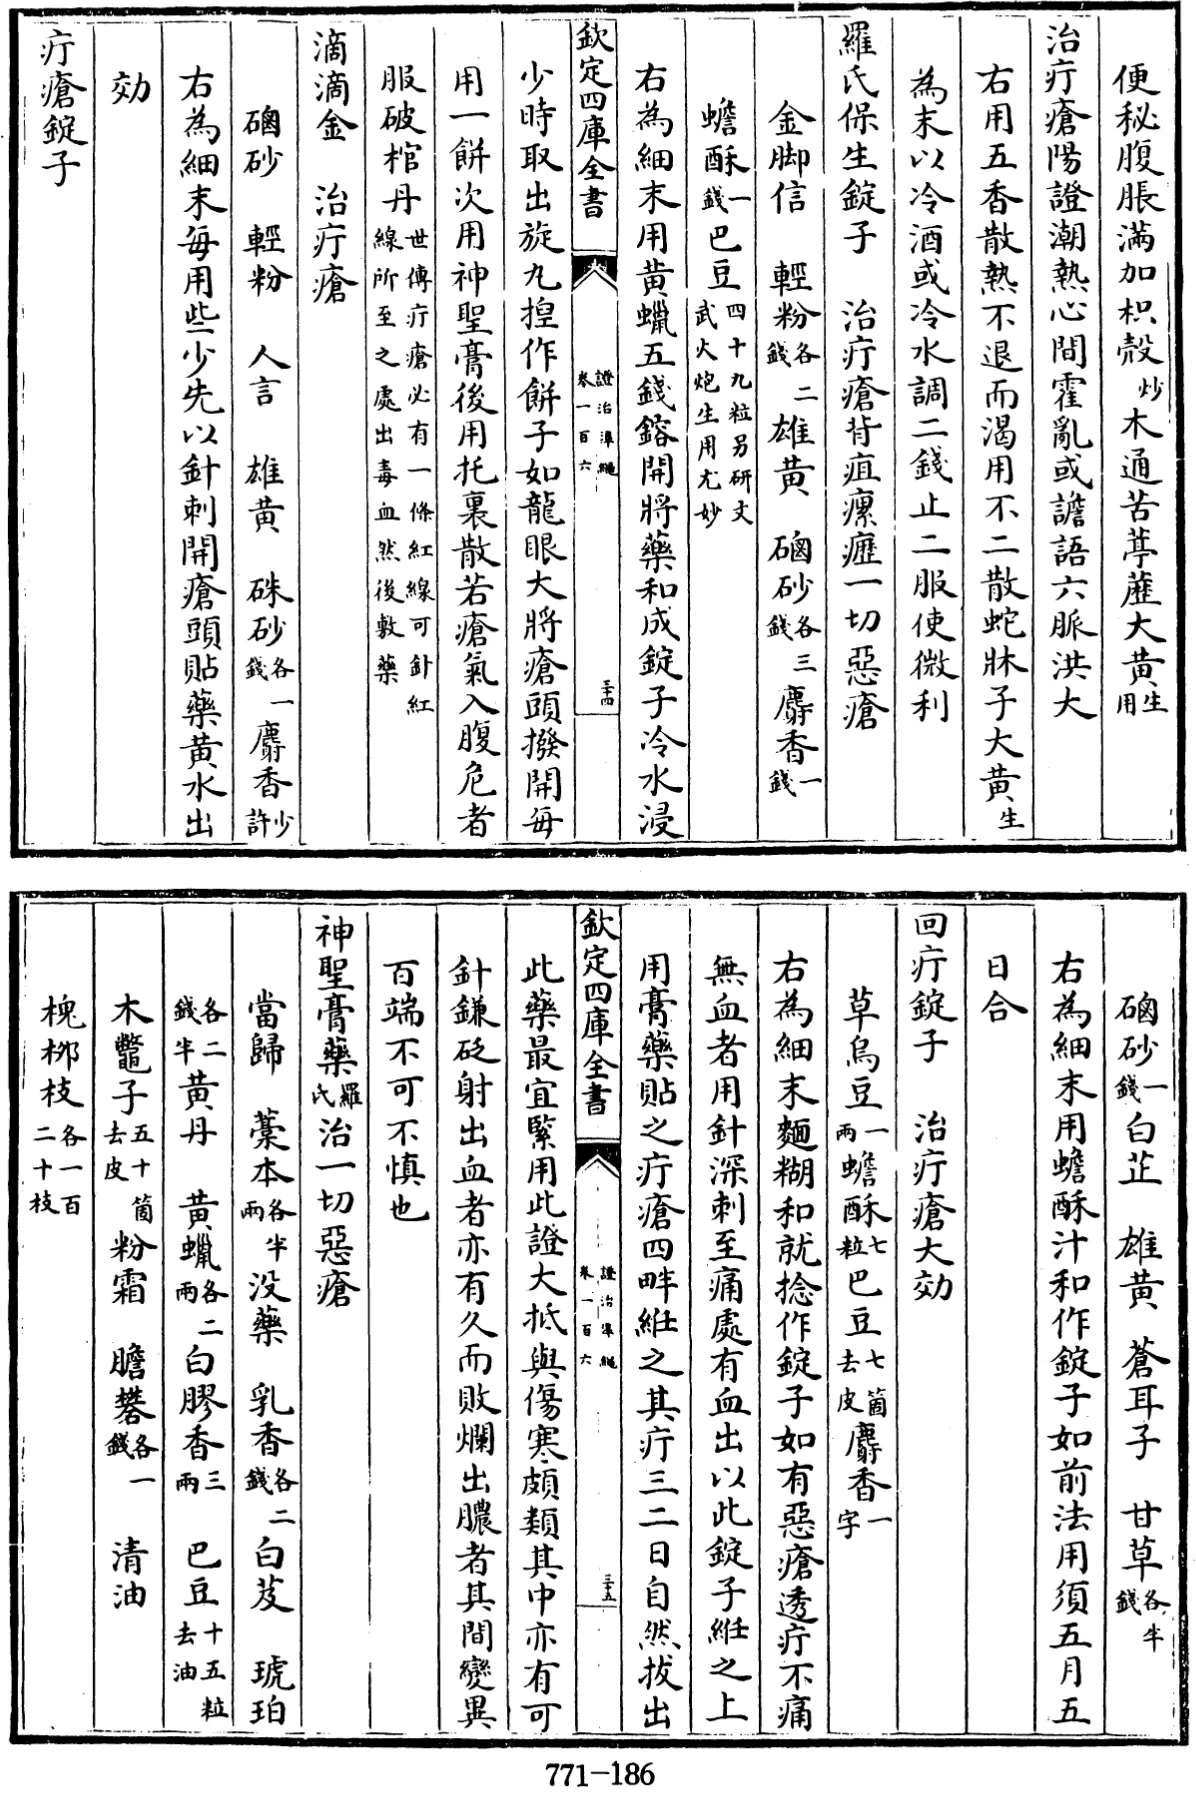 便秘腹脹滿加枳殼炒木通苦葶藶大黃生用
治疔瘡陽證潮熱心間霍亂或譫語六脈洪大
右用五香散熱不退而渴用不二散蛇牀子大黃生
為末以冷酒或冷水調二錢止二服使微利
羅氏保生錠子　治疔瘡背疽瘰癧一切惡瘡
金脚信　輕粉各二錢雄黃　硇砂各三錢麝香一錢
蟾酥一錢巴豆四十九粒另研文武火炮生用尤妙
右為細末用黃蠟五錢鎔開將藥和成錠子冷水浸
欽定四庫全書
證治準繩
卷一百六
三十四
少時取出旋丸揑作餅子如龍眼大將瘡頭撥開每
用一餅次用神聖膏後用托裏散若瘡氣入腹危者
服破棺丹世傳疔瘡必有一條紅線可針紅線所至之處出毒血然後敷藥
滴滴金　治疔瘡
硇砂　輕粉　人言　雄黃　硃砂各一錢麝香少許
右為細末每用些少先以針刺開瘡頭貼藥黃水出
効
疔瘡錠子
硇砂一錢白芷　雄黃　蒼耳子　甘草各半錢
右為細末用蟾酥汁和作錠子如前法用須五月五
日合
回疔錠子　治疔瘡大効
草烏豆一兩蟾酥七粒巴豆七箇去皮麝香一字
右為細末麵糊和就捻作錠子如有惡瘡透疔不痛
無血者用針深刺至痛處有血出以此錠子維之上
用膏藥貼之疔瘡四畔維之其疔三二日自然拔出
欽定四庫全書
證治準繩
卷一百六
三十五
此藥最宜緊用此證大抵與傷寒頗類其中亦有可
針鎌砭射出血者亦有久而敗爛出膿者其間變異
百端不可不慎也
神聖膏藥羅氏治一切惡瘡
當歸　藁本各半兩没藥　乳香各二錢白芨　琥珀
各二錢半黃丹　黃蠟各二兩白膠香三兩　巴豆十五粒去油
木鼈子五十箇去皮粉霜　膽礬各一錢　清油
槐栁枝各一百二十枝
771-186